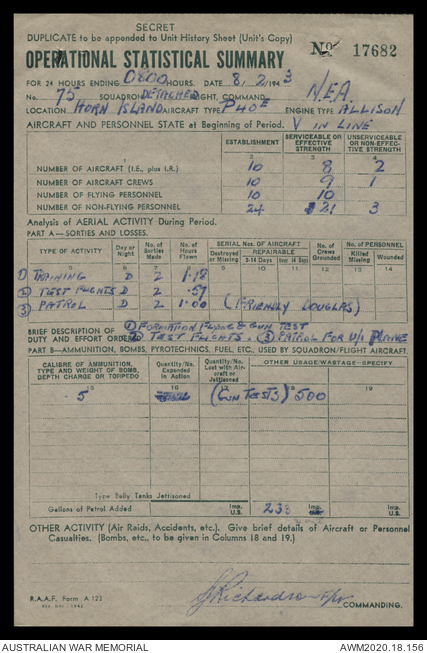 SECRET
DUPLICATE to be appended to Unit History Sheet (Unit's Copy)
OPERATIONAL STATISTICAL SUMMARY No 17682
FOR 24 HOURS ENDING 0800 HOURS. DATE 8/2/1943
No. 75 SQUADRON DETACHED FLIGHT, COMMAND N.E.A.
LOCATION HORN ISLAND. AIRCRAFT TYPE P40E ENGINE TYPE ALLISON
AIRCRAFT AND PERSONNEL STATE at Beginning of Period. V IN LINE
ESTABLISHMENT SERVICEABLE OR EFFECTIVE STRENGTH UNSERVICEABLE OR NON-EFFECTIVE STRENGTH
1 2 3 4
NUMBER OF AIRCRAFT (I.E., plus I.R.) 10 8 2
NUMBER OF AIRCRAFT CREWS 10 9 1
NUMBER OF FLYING PERSONNEL 10 10
NUMBER OF NON-FLYING PERSONNEL 24 21 3
Analysis of AERIAL ACTIVITY During Period.
PART A—SORTIES AND LOSSES.
TYPE OF ACTIVITY Day or Night No. of Sorties Made No. of Hours Flown SERIAL Nos. OF AIRCRAFT Destroyed or Missing REPAIRABLE 3-14 Days Over 14 Days No. of Crews Grounded No. of PERSONNEL Killed Missing Wounded
5 6 7 8 9 10 11 12 13 14
1) TRAINING D 2 1.18
2) TEST FLIGHTS D 2 .57
3) PATROL D 2 1.00 (FRIENDLY DOUGLAS)
BRIEF DESCRIPTION OF 1) FORMATION FLYING & GUN TEST
DUTY AND EFFORT ORDERED 2) TEST FLIGHTS. 3) PATROL FOR U/I PLANE
PART B—AMMUNITION, BOMBS, PYROTECHNICS, FUEL, ETC., USED BY SQUADRON/FLIGHT AIRCRAFT.
CALIBRE OF AMMUNITION, TYPE AND WEIGHT OF BOMB, DEPTH CHARGE OR TORPEDO Quantity/No. Expended in Action Quantity/No. Lost with Aircraft or Jettisoned OTHER USAGE/WASTAGE—SPECIFY
15 16 17 18 19
.5 (GUN TESTS) 500
Type Belly Tanks Jettisoned
Gallons of Petrol Added Imp. U.S. Imp. U.S.
OTHER ACTIVITY (Air Raids, Accidents, etc.). Give brief details of Aircraft or Personnel
Casualties. (Bombs, etc., to be given in Columns 18 and 19.)
R.A.A.F. Form A 123
COMMANDING.
AUSTRALIAN WAR MEMORIAL AWM2020.18.156